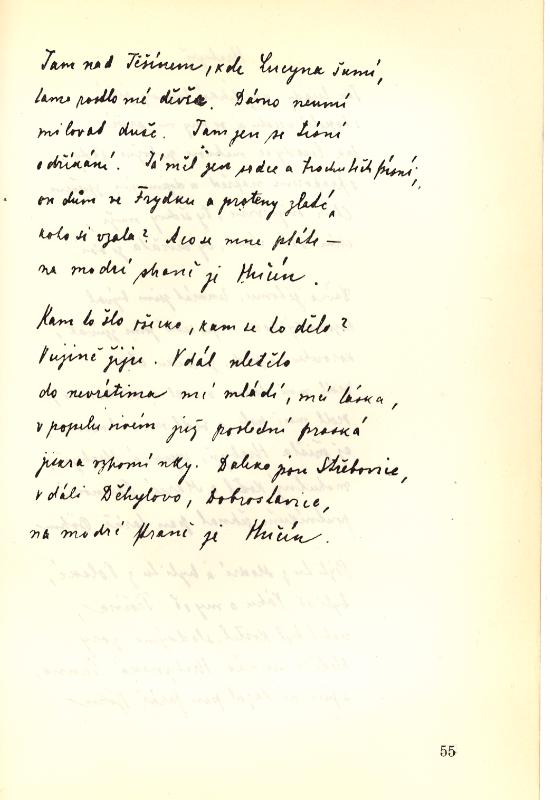 Tam nad Těšínem, kde Lucyna šumí,
tam rostlo mé děvče. Dávno neumí
milovat duše. Tam jen se tísní
odříkání. Já měl jen srdce a trochu těch písní,
on dům ve Frydku a prsteny zlaté,
koho si vzala? A co se mne ptáte —
na modré straně je Hučín.
Kam to šlo všecko, kam se to dělo?
V ujině žiju. V dál uletělo
do nevrátima mé mládí, má láska,
v popelu sivém již poslední praská
jiskra vzpomínky. Daleko jsou Střebovice,
v dáli Děhylovo, Dobroslavice,
na modré straně je Hučín.
55